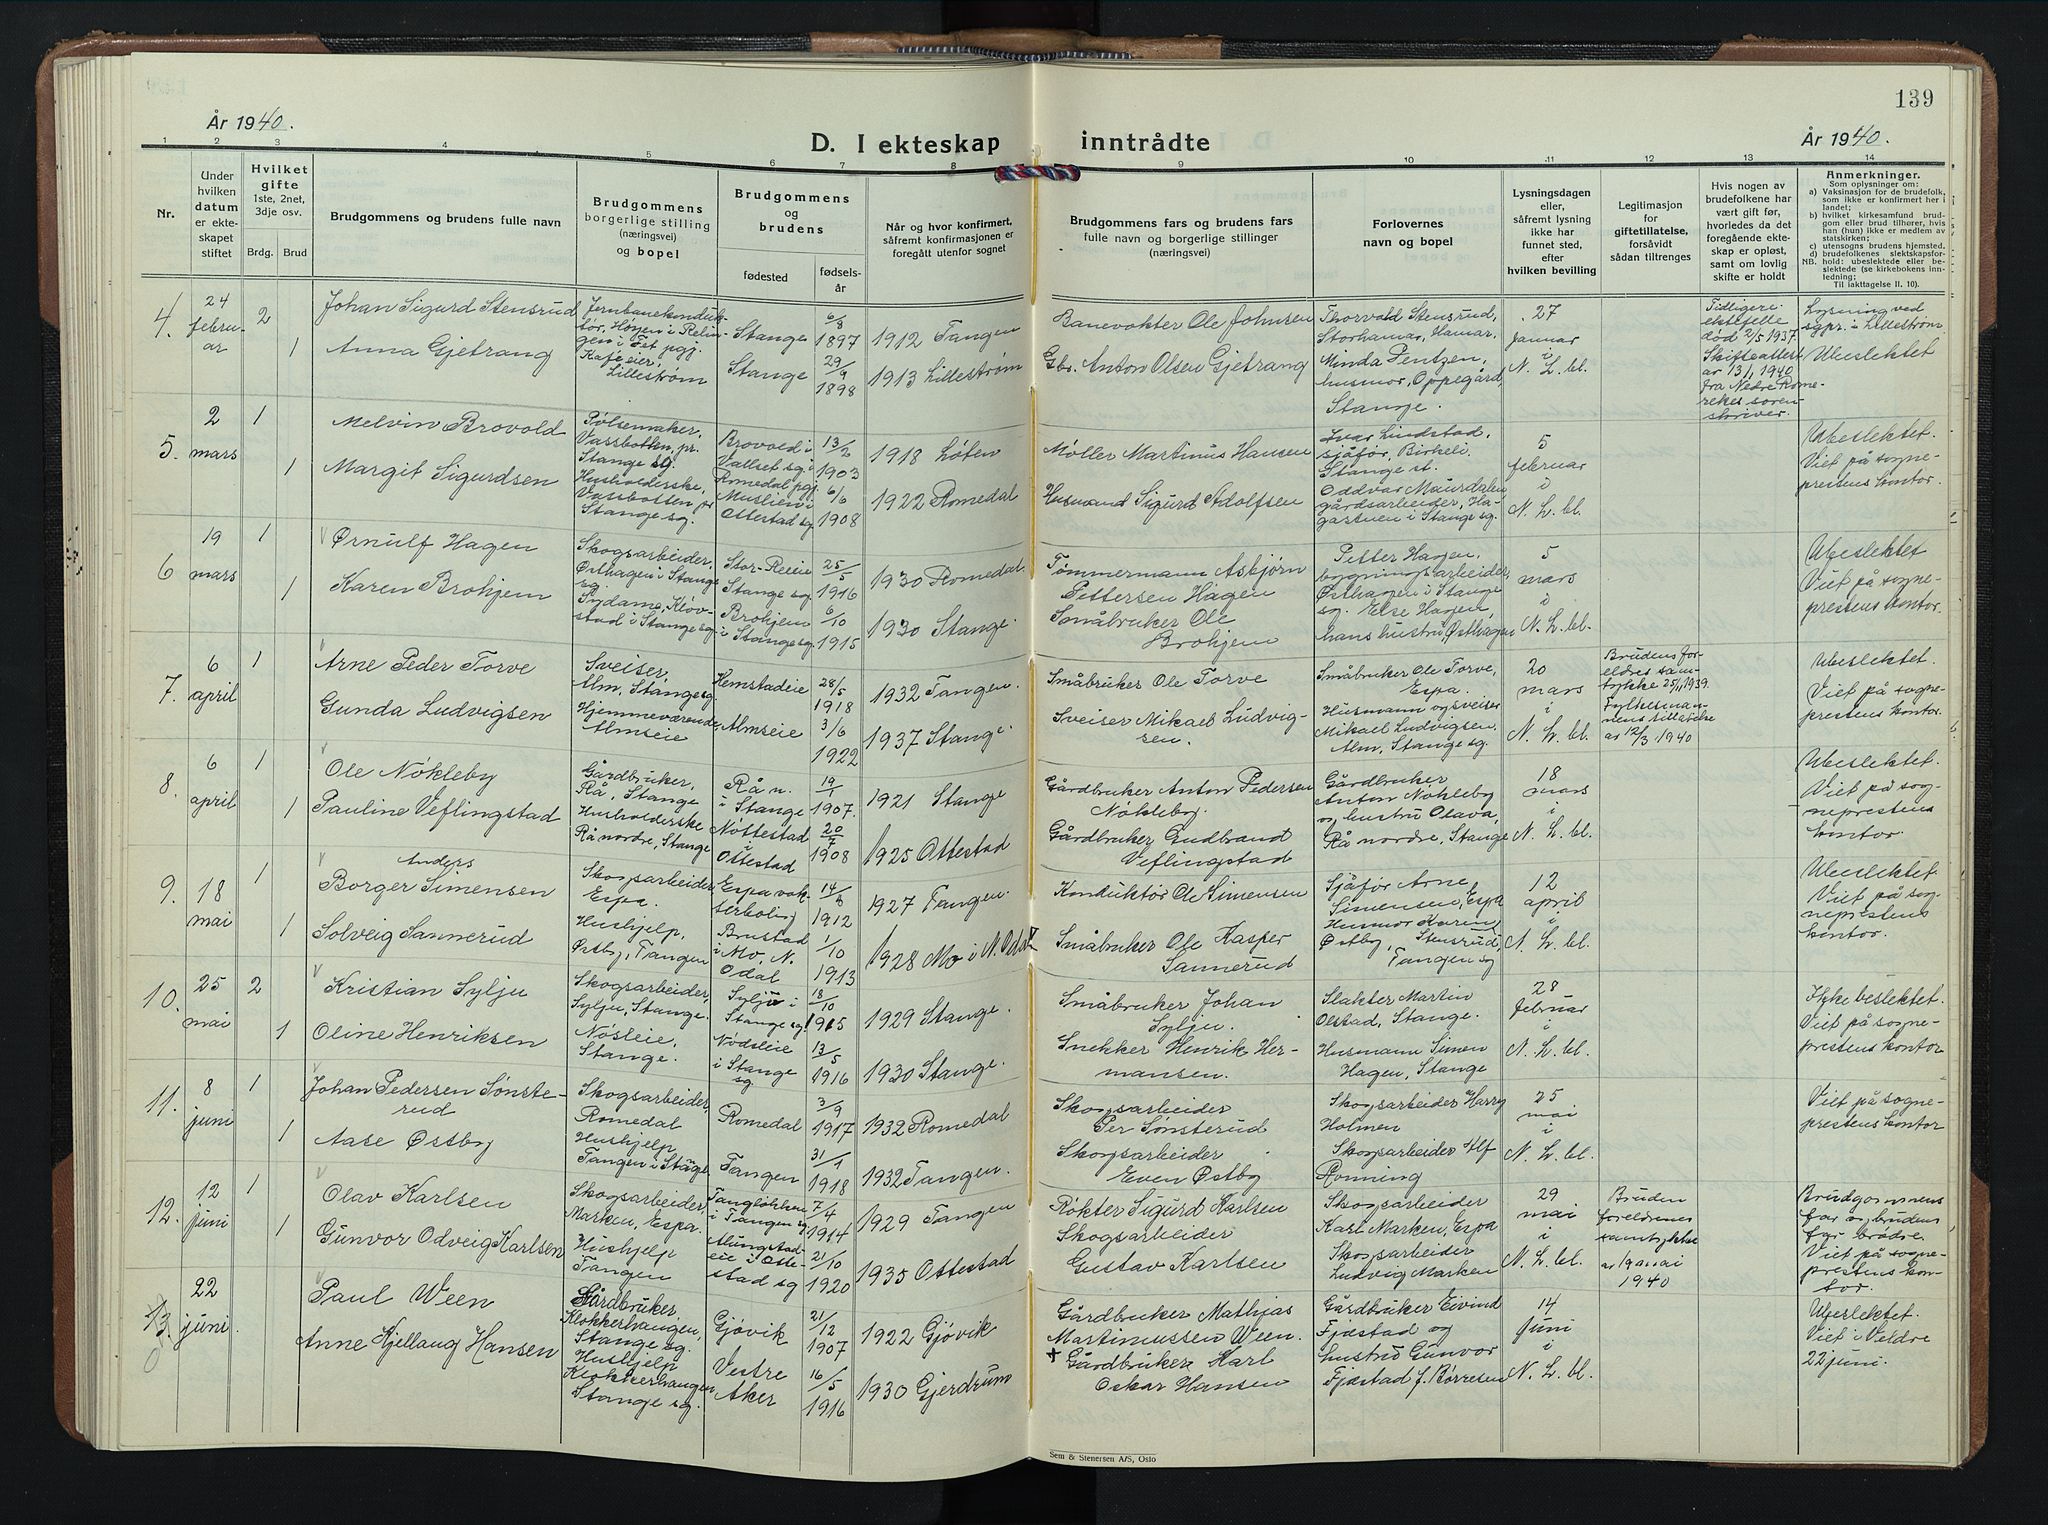 139
År 1940.
D. I ekteskap inntrådte
År 1940.
1 2 3 4 5 6 7 8 9 10 11 12 13 14
Nr.
Under
hvilken
datum
er ekte-
skapet
stiftet
Hvilket
gifte
1ste, 2net,
3dje osv.
Brdg. Brud
Brudgommens og brudens fulle navn
Brudgommens
borgerlige stilling
(næringsvei)
og bopel
Brudgommens
og
brudens
fødested
fødsels-
år
Når og hvor konfirmert,
såfremt konfirmasjonen er
foregått utenfor sognet
Brudgommens fars og brudens fars
fulle navn og borgerlige stillinger
(næringsvei)
Forlovernes
navn og bopel
Lysningsdagen
eller,
såfremt lysning
ikke har
funnet sted,
efter
hvilken bevilling
Legitimasjon
for
giftetillatelse,
forsåvidt
sådan tiltrenges
Hvis nogen av
brudefolkene har
vært gift før,
hvorledes da det
foregående ekte-
skap er opløst,
samt om lovlig
skifte er holdt
Anmerkninger.
Som oplysninger om:
a) Vaksinasjon for de brudefolk,
som ikke er konfirmert her i
landet;
b) hvilket kirkesamfund brud-
gom eller brud tilhører, hvis
han (hun) ikke er medlem av
statskirken;
c) utensogns brudens hjemsted.
d) brudefolkenes slektskapsfor-
NB. hold: ubeslektede eller be-
slektede (se kirkebokens inn-
ledning;
Til iakttagelse II. 10).
4.
24
febru-
ar
2
1
Johan Sigurd Stensrud
Anna Gjetrang
Jernbanekonduk-
tør, Høyen i Relin-
gen i Fet pgj.
Kafeeier,
Lillestrøm
Stange
Stange
6/8
1897
29/9
1898
1912 Tangen
1913 Lillestrøm
Banevokter Ole Johnsen
Gbr. Anton Olsen Gjetrang
Thorvald Stensrud,
Storhamar, Hamar.
Minda Pentzen,
husmor, Oppegård,
Stange.
27
januar
i
N. L. bl.
Tidligere
ektefelle
død 2/5 1937.
Skifteattest
av 13/1 1940
fra Nedre Rome-
rekes soren-
skriver.
Lysning ved
sgpr. i Lillestrøm.
Ubeslektet
5.
2
mars
1
1
Melvin Brovold
Margit Sigurdsen
Pølsemaker,
Vassbotten, pr.
Stange sg.
Husholderske,
Vassbotten, pr
Stange sg.
Brovold i
Vallset sg i
Romedal pgj.
Muslien i
Ottestad sg
13/2
1903
6/6
1908
1918 Løten
1922 Romedal
Møller Martinus Hansen
Husmand Sigurd Adolfsen
Ivar Lindstad,
sjåfør, Birkeli,
Stange st.
Oddvar Maurdalen
gårdsarbeider, Ha-
gastuen i Stange sg.
5
februar
i
N. L. bl.
Ubeslektet.
Viet på sogne-
prestens kontor.
6
19
mars
1
1
Ørnulf Hagen
Karen Brohjem
Skogsarbeider,
Østhagen i Stange
sg.
Sydame, Kløv-
stad i Stange sg.
Stor-Reeie
Stange sg
Brohjem
i Stange sg.
25/5
1916
6/10
1915
1930 Romedal
1930 Stange.
Tømmermann Asbjørn
Pettersen Hagen
Småbruker Ole
Brohjem
Petter Hagen,
bygningsarbeider,
Østhagen i Stange
sg. Else Hagen,
hans hustru, Østhagen
5
mars
i
N. L. bl.
Ubeslektet
Viet på sogne-
prestens kontor.
7.
6
april
1
Arne Peder Torve
Gunda Ludvigsen
Sveiser,
Alm, Stange sg
Hjemmeværende
Almseie
Hemstadeie
Almseie
28/5
1918
3/6
1922
1932 Tangen.
1937 Stange.
Småbruker Ole Torve
Sveiser Mikael Ludvig-
sen.
Småbruker Ole Torve,
Espa.
Husmann og sveiser
Mikael Ludvigsen,
Alm, Stange sg.
20
mars
i
N. L. bl.
Brudens for-
eldres sam-
tykke 25/11 1939.
Fylkesman-
nens tillatelse
av 12/3 1940
Ubeslektet.
Viet på sogne-
prestens kontor.
8.
6
april
1
1
Ole Nøkleby
Pauline Veflingstad
Gårdbruker,
Rå, Stange
Husholderske
Rå nordre, Stange
Rå n.
i Stange
Nøttestad
i
Ottestad
19/1
1907.
20/7
1908
1921 Stange
1925 Ottestad
Gårdbruker Anton Pedersen
Nøkleby.
Gårdbruker Gudbrand
Veflingstad
Gårdbruker
Anton Nøkleby
og hustru Olava,
Rå nordre, Stange
18
mars
i
N. L. bl.
Ubeslektet.
Viet på sog-
neprestens
kontor.
9.
18
mai
1
1
Anders
Borger Simensen
Solveig Sannerud
Skogsarbeider
Espa.
Hushjelp,
Østby, Tangen
Espa vok-
terbolig
Brustad
i Mo, N.
Odal
14/8
1912
1/10
1913
1927 Tangen.
1928 Mo i N. Odal
Konduktør Ole Simensen
Småbruker Ole Kasper
Sannerud
Sjåfør Arne
Simensen, Espa
Husmor Karen
Østby, Stensrud,
Tangen sg
12
april
i
N. L. bl.
Ubeslektet
Viet på sog-
neprestens
kontor.
10.
25
mai
2
1
Kristian Sylju
Oline Henriksen
Skogsarbeider,
Sylju, Stange.
Nøsleie,
Stange.
Sylju i
Stange sg.
Nødsleie
i Stange
sg
18/10
1915
13/5
1916
1929 Stange.
1930 Stange.
Småbruker Johan
Sylju.
Snekker Henrik Her-
mansen.
Slakter Martin
Olstad, Stange.
Husmann Simen
Hagen, Stange
28
februar
i
N. L. bl.
Ikke beslektet.
Viet på sogne-
prestens kontor
11.
8
juni
1
1
Johan Pedersen Sønste-
rud
Aase Østby
Skogsarbeider,
Romedal
Hushjelp
Tangen i Stange
Romedal
Tangen
3/9
1917
31/1
1918
1932 Romedal
1932 Tangen.
Skogsarbeider
Per Sønsterud
Skogsarbeider
Even Østby
Skogsarbeider Harry
Holmen
Skogsarbeider Alf
Rønning
25
mai
i
N. L. bl.
Viet på sogne-
prestens kontor
12.
12
juni
1
1
Olav Karlsen
Gunvor Odveig Karlsen
Skogsarbeider,
Marken, Espa.
Hushjelp
Tangen
Tangløkken
i Tangen sg
Alungstad-
eie i Otte-
stad sg
7/4
1914
21/10
1920
1929 Tangen
1935 Ottestad
Røkter Sigurd Karlsen
Skogsarbeider
Gustav Karlsen
Skogsarbeider
Karl Marken, Espa
Skogsarbeider
Ludvig Marken
29
mai
i
N. L. bl.
Bruden
foreldrenes
samtykke
av 19 mai
1940
Brudgommens
far og brudens
far brødre.
Viet på sogne-
prestens kon-
tor.
13.
22
juni.
Paul Ween
Anne Kjellaug Hansen
Gårdbruker
Klokkerhaugen,
Stange sg.
Hushjelp
Klokkerhaugen
Stange sg.
Gjøvik
Vestre
Aker
21/12
1907
16/5
1916
1922 Gjøvik
1930 Gjerdrum
Gårdbruker Mathias
Martinussen Ween.
+ Gårdbruker Karl
Oskar Hansen
Gårdbruker Eivind
Fjæstad og
hustru Gunvor
Fjæstad f. Børresen
14
juni
i
N. L. bl.
Ubeslektet.
Viet i Veldre
22 juni.
Sem & Stenersen A/S, Oslo